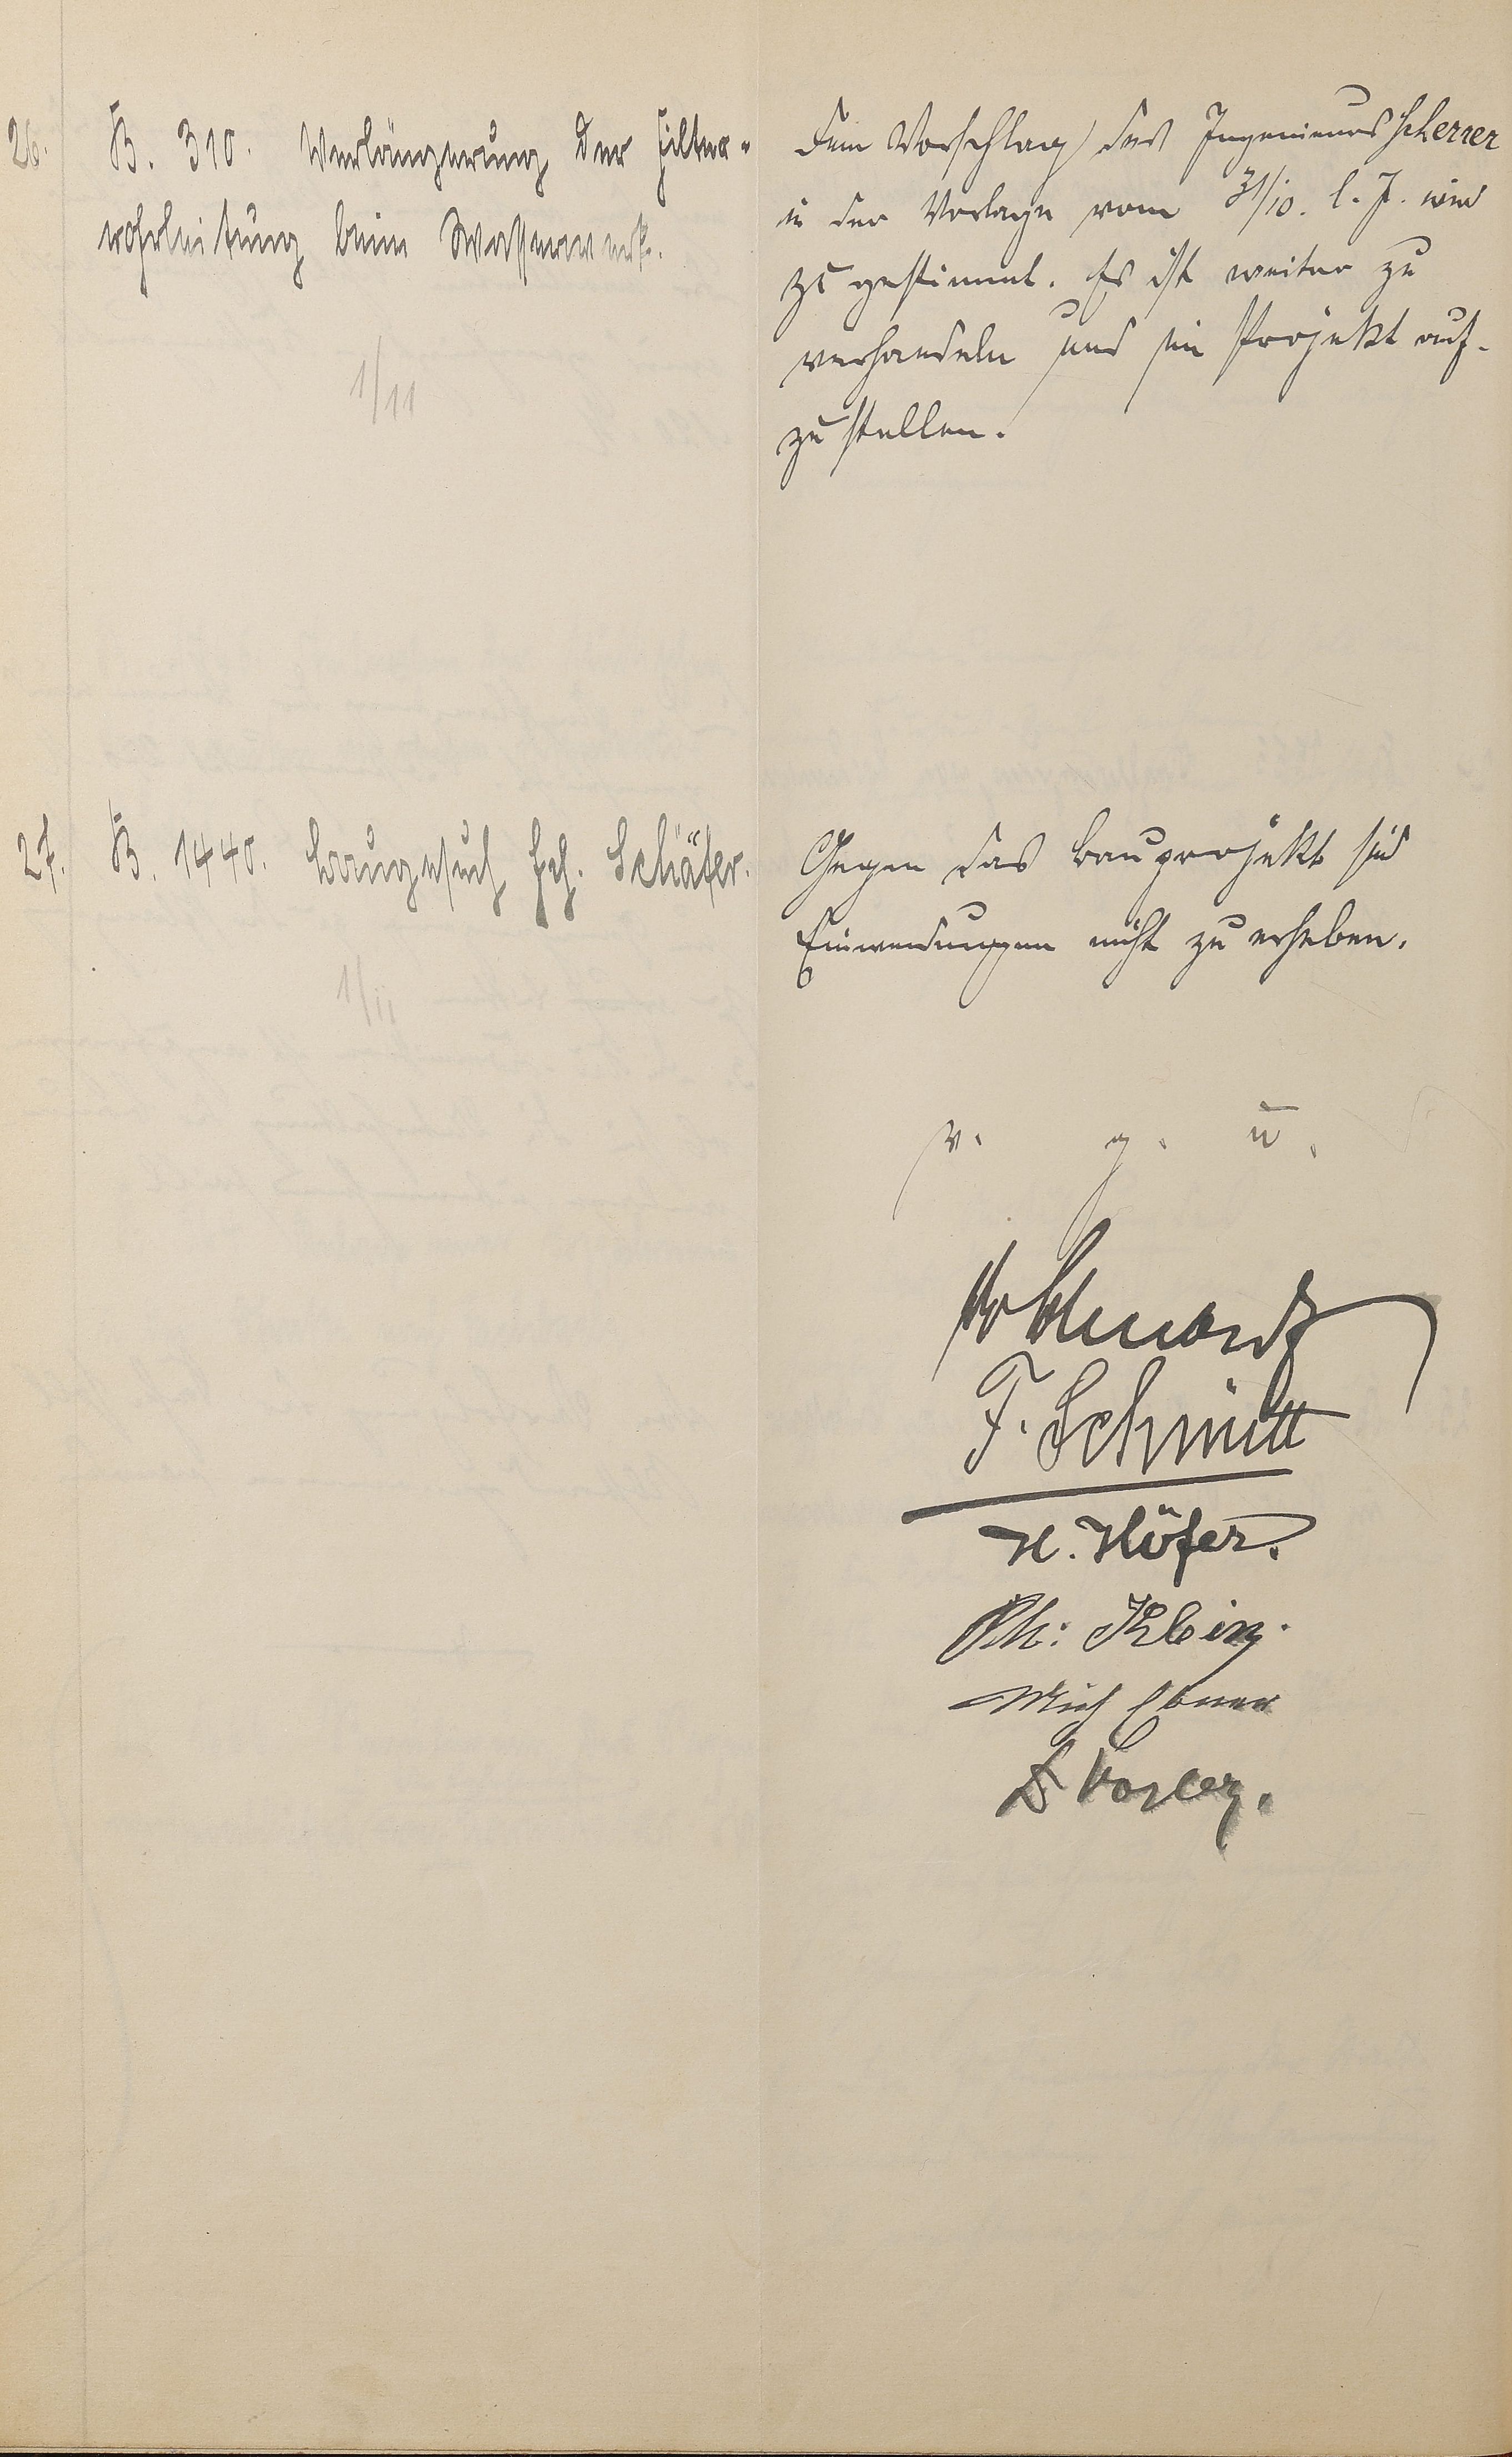 26. B. 310. Verlängerung der Filter-
rohrleitung beim Wasserwerk.
1/11
Dem Vorschlag des Ingenieurs Scherrer
in der Vorlage vom 31/10. l. J. wird
zugestimmt. Es ist weiter zu
verhandeln und ein Projekt auf-
zustellen.
27. B. 1440. Baugesuch Hch. Schäfer.
1/11
Gegen das Bauprojekt sind
Einwendungen nicht zu erheben.
v. g. u.
F. Schmitt
H. Höfer.
Ph: Klein.
Mich Ebner